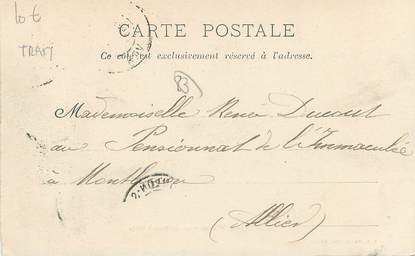 lot
CARTE POSTALE
Ce côté est exclusivement réservé à l'adresse.
Mademoiselle Renée
au Pensionnat de l'Immaculée
à Montluçon
(Allier)